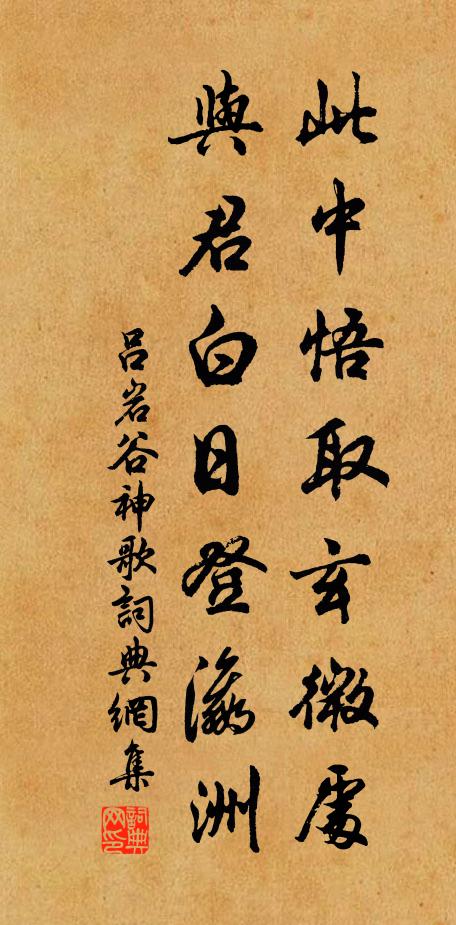 此中悟取玄微處
與君白日登瀛洲
吕岩谷神歌詞典網集
詞典网印